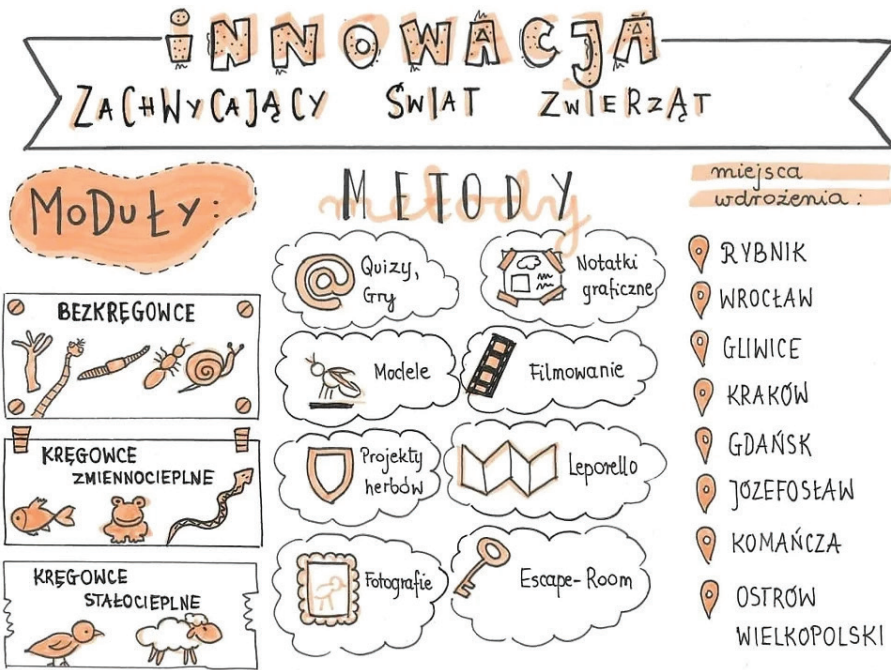 INNOWACJA
ZACHWYCAJĄCY ŚWIAT ZWIERZĄT
MODUŁY:
BEZKRĘGOWCE
KRĘGOWCE
ZMIENNOCIEPLNE
KRĘGOWCE
STAŁOCIEPLNE
METODY
metody
Quizy,
Gry
Notatki
graficzne
Modele
Filmowanie
Projekty
herbów
Leporello
Fotografie
Escape-Room
miejsca
wdrożenia:
RYBNIK
WROCŁAW
GLIWICE
KRAKÓW
GDAŃSK
JÓZEFOSŁAW
KOMAŃCZA
OSTRÓW
WIELKOPOLSKI